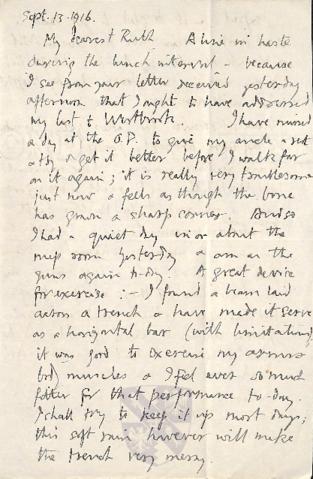 Sept. 13. 1916.
My dearest Ruth. A line in haste
during the lunch interval – because
I see from your letter received yesterday
afternoon that I ought to have addressed
my last to Westbrook. I have missed
a day at the O.P. to give my ankle a rest
& get it better before I walk far
on it again; it is really very troublesome
just now & feels as though the bone
has grown a sharp corner. And so
I had a quiet day in or about the
mess room yesterday & am on the
guns again to-day. A great device
for exercise :– I found a beam laid
across a trench & have made it serve
as a horizontal bar (with limitations)
it was good to exercise my
muscles & I feel ever so much
fitter for that performance to-day.
I shall try to keep it up most days;
this soft rain however will make
the trench very messy.